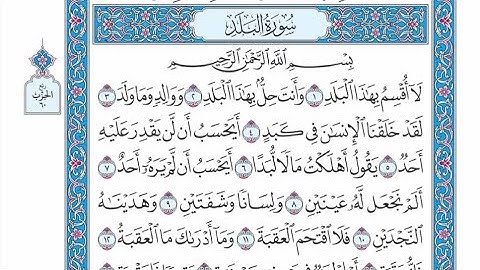 سُورَةُ البَلَدِ
بِسْمِ ٱللَّهِ ٱلرَّحْمَٰنِ ٱلرَّحِيمِ
لَآ أُقْسِمُ بِهَٰذَا ٱلْبَلَدِ ١ وَأَنتَ حِلٌّۢ بِهَٰذَا ٱلْبَلَدِ ٢ وَوَالِدٍ وَمَا وَلَدَ ٣
لَقَدْ خَلَقْنَا ٱلْإِنسَٰنَ فِى كَبَدٍ ٤ أَيَحْسَبُ أَن لَّن يَقْدِرَ عَلَيْهِ
أَحَدٌ ٥ يَقُولُ أَهْلَكْتُ مَالًا لُّبَدًا ٦ أَيَحْسَبُ أَن لَّمْ يَرَهُۥٓ أَحَدٌ ٧
أَلَمْ نَجْعَل لَّهُۥ عَيْنَيْنِ ٨ وَلِسَانًا وَشَفَتَيْنِ ٩ وَهَدَيْنَٰهُ
ٱلنَّجْدَيْنِ ١٠ فَلَا ٱقْتَحَمَ ٱلْعَقَبَةَ ١١ وَمَآ أَدْرَىٰكَ مَا ٱلْعَقَبَةُ ١٢